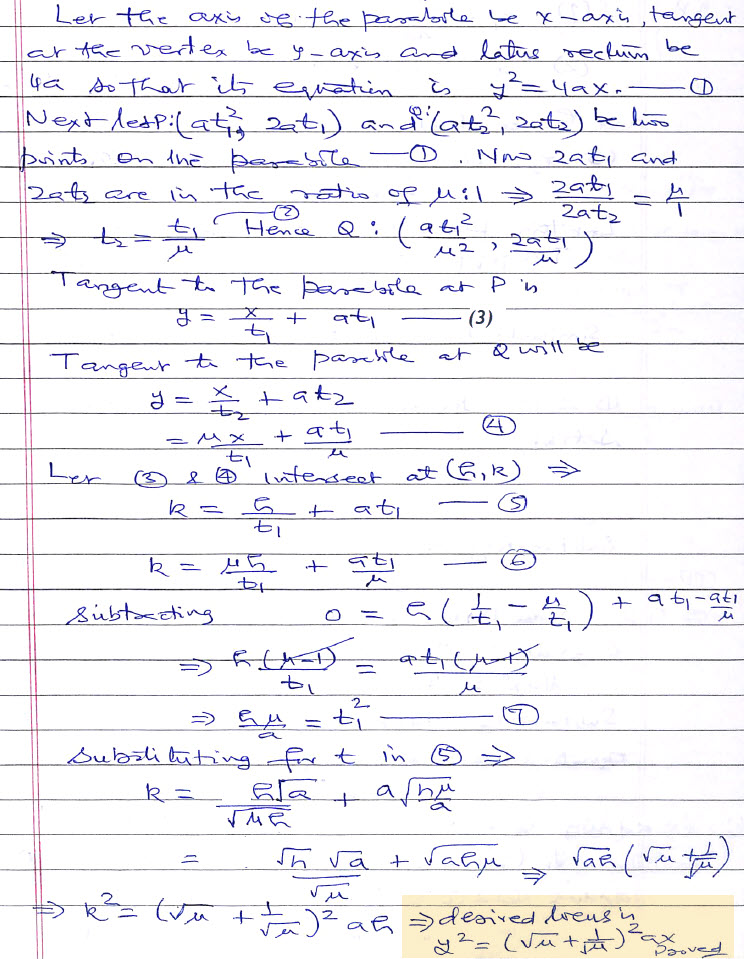 Let the axis of the parabola be x-axis, tangent
at the vertex be y-axis and latus rectum be
4a so that its equation is y² = 4ax. —— ①
Next let P:(at₁², 2at₁) and Q:(at₂², 2at₂) be two
points on the parabola —①. Now 2at₁ and
2at₂ are in the ratio of μ:1 ⇒ 2at₁/2at₂ = μ/1
⇒ t₂ = t₁/μ —② Hence Q : (at₁²/μ², 2at₁/μ)
Tangent to the parabola at P is
y = x/t₁ + at₁ —— (3)
Tangent to the parabola at Q will be
y = x/t₂ + at₂
= μx/t₁ + at₁/μ —— ④
Let ③ & ④ intersect at (h,k) ⇒
k = h/t₁ + at₁ —— ⑤
k = μh/t₁ + at₁/μ —— ⑥
Subtracting 0 = h(1/t₁ - μ/t₁) + at₁ - at₁/μ
⇒ h(μ-1)/t₁ = at₁(μ-1)/μ
⇒ hμ/a = t₁² —— ⑦
Substituting for t in ⑤ ⇒
k = h√a/√μh + a√hμ/a
= √h √a/√μ + √ahμ ⇒ √ah (√μ + 1/√μ)
⇒ k² = (√μ + 1/√μ)² ah ⇒ desired locus is
y² = (√μ + 1/√μ)² ax
Proved